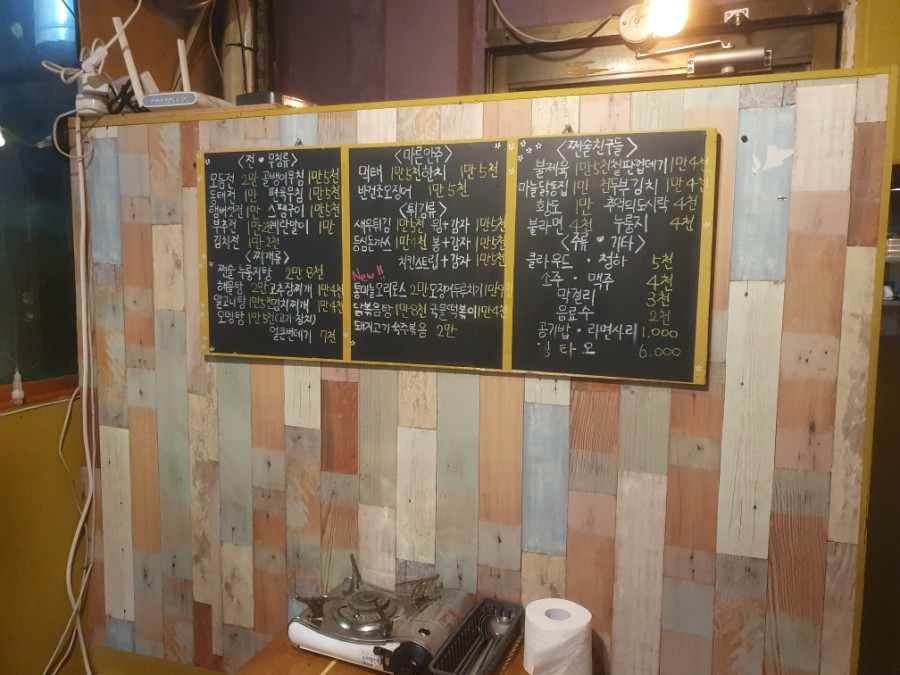 <전 • 무침류>
모듬전 2만 골뱅이무침 1만5천
동태전 1만 편육무침 1만5천
햄버섯전 1만 스팸구이 1만5천
부추전 1만2천 계란말이 1만
김치전 1만2천
<찌개류>
쩐술 누룽지탕 2만8천
해물탕 2만 고추장찌개 1만4천
알고니탕 1만5천 김치찌개 1만4천
오뎅탕 1만5천 (고기·참치)
얼큰번데기 7천
<마른안주>
먹태 1만5천 한치 1만5천
반건조오징어 1만5천
<튀김류>
새우튀김 1만5천 윙+감자 1만5천
등심돈까스 1만4천 봉+감자 1만5천
치킨스트립+감자 1만5천
New!!
통마늘오리로스 2만 오징어두루치기 1만9천
닭볶음탕 1만8천 국물떡볶이 1만4천
돼지고기숙주볶음 2만
<쩐술친구들>
불제육 1만5천 철판껍데기 1만4천
마늘닭똥집 1만 천 두부김치 1만4천
황도 1만 추억의도시락 4천
불라면 4천 누룽지 4천
<주류 • 기타>
클라우드 · 청하 5천
소주 · 맥주 4천
막걸리 3천
음료수 2천
공기밥 · 라면사리 1,000
타오 6.000